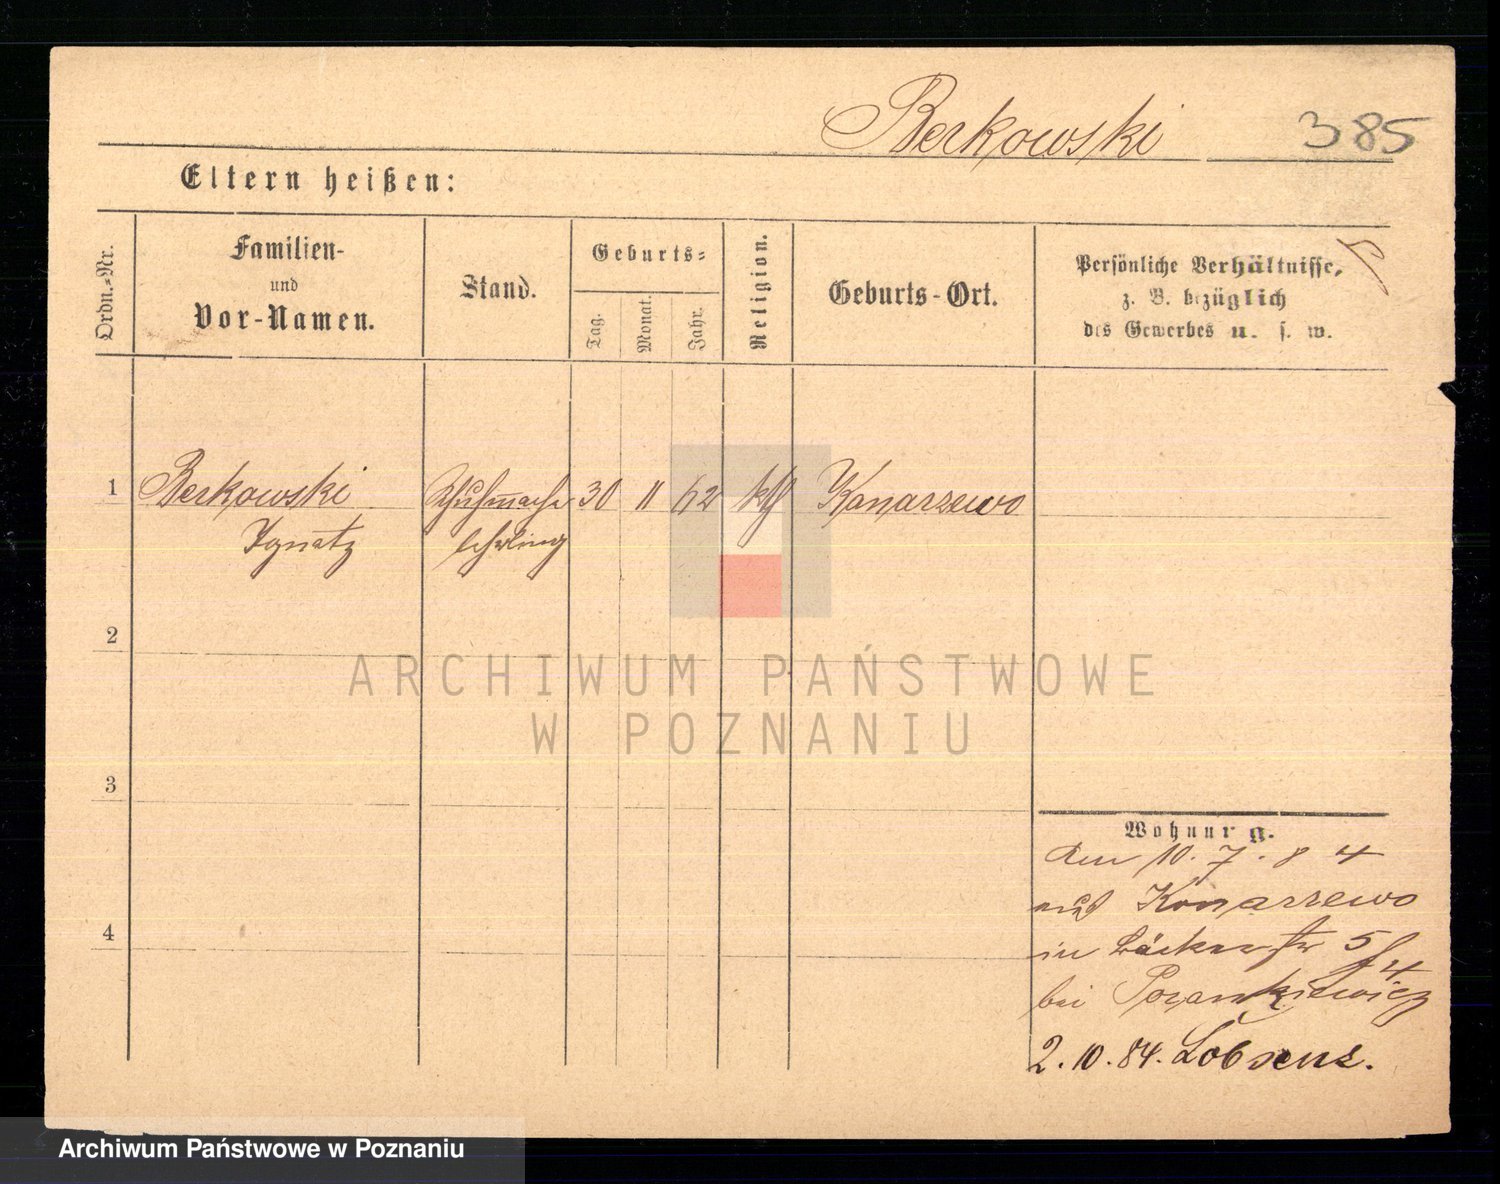 Berkowski 385
Eltern heißen:
Ordn.-Nr.
Familien-
und
Vor-Namen.
Stand.
Geburts-
Tag.
Monat.
Jahr.
Religion.
Geburts-Ort.
Persönliche Verhältnisse,
z. B. bezüglich
des Gewerbes u. s. w.
1 Berkowski Schuhmacher 30 11 62 kth Konarzewo
Ignatz lehrling
2
3
4
Wohnung.
den 10. 7. 84
aus Konarzewo
in Bäckerstr 5
bei
2. 10. 84. Lobsens.
ARCHIWUM PAŃSTWOWE
W POZNANIU
Archiwum Państwowe w Poznaniu